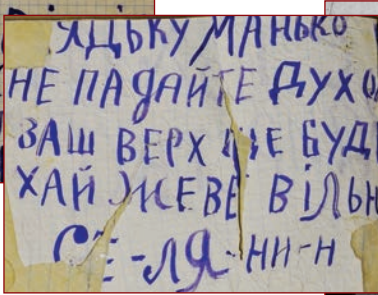 ЯДЬКУ МАНЬКО
НЕ ПАДАЙТЕ ДУХО
ВАШ ВЕРХ ЩЕ БУДЕ
ХАЙ ЖЕВЕ ВІЛЬН
СЕ-ЛЯ-НИ-Н